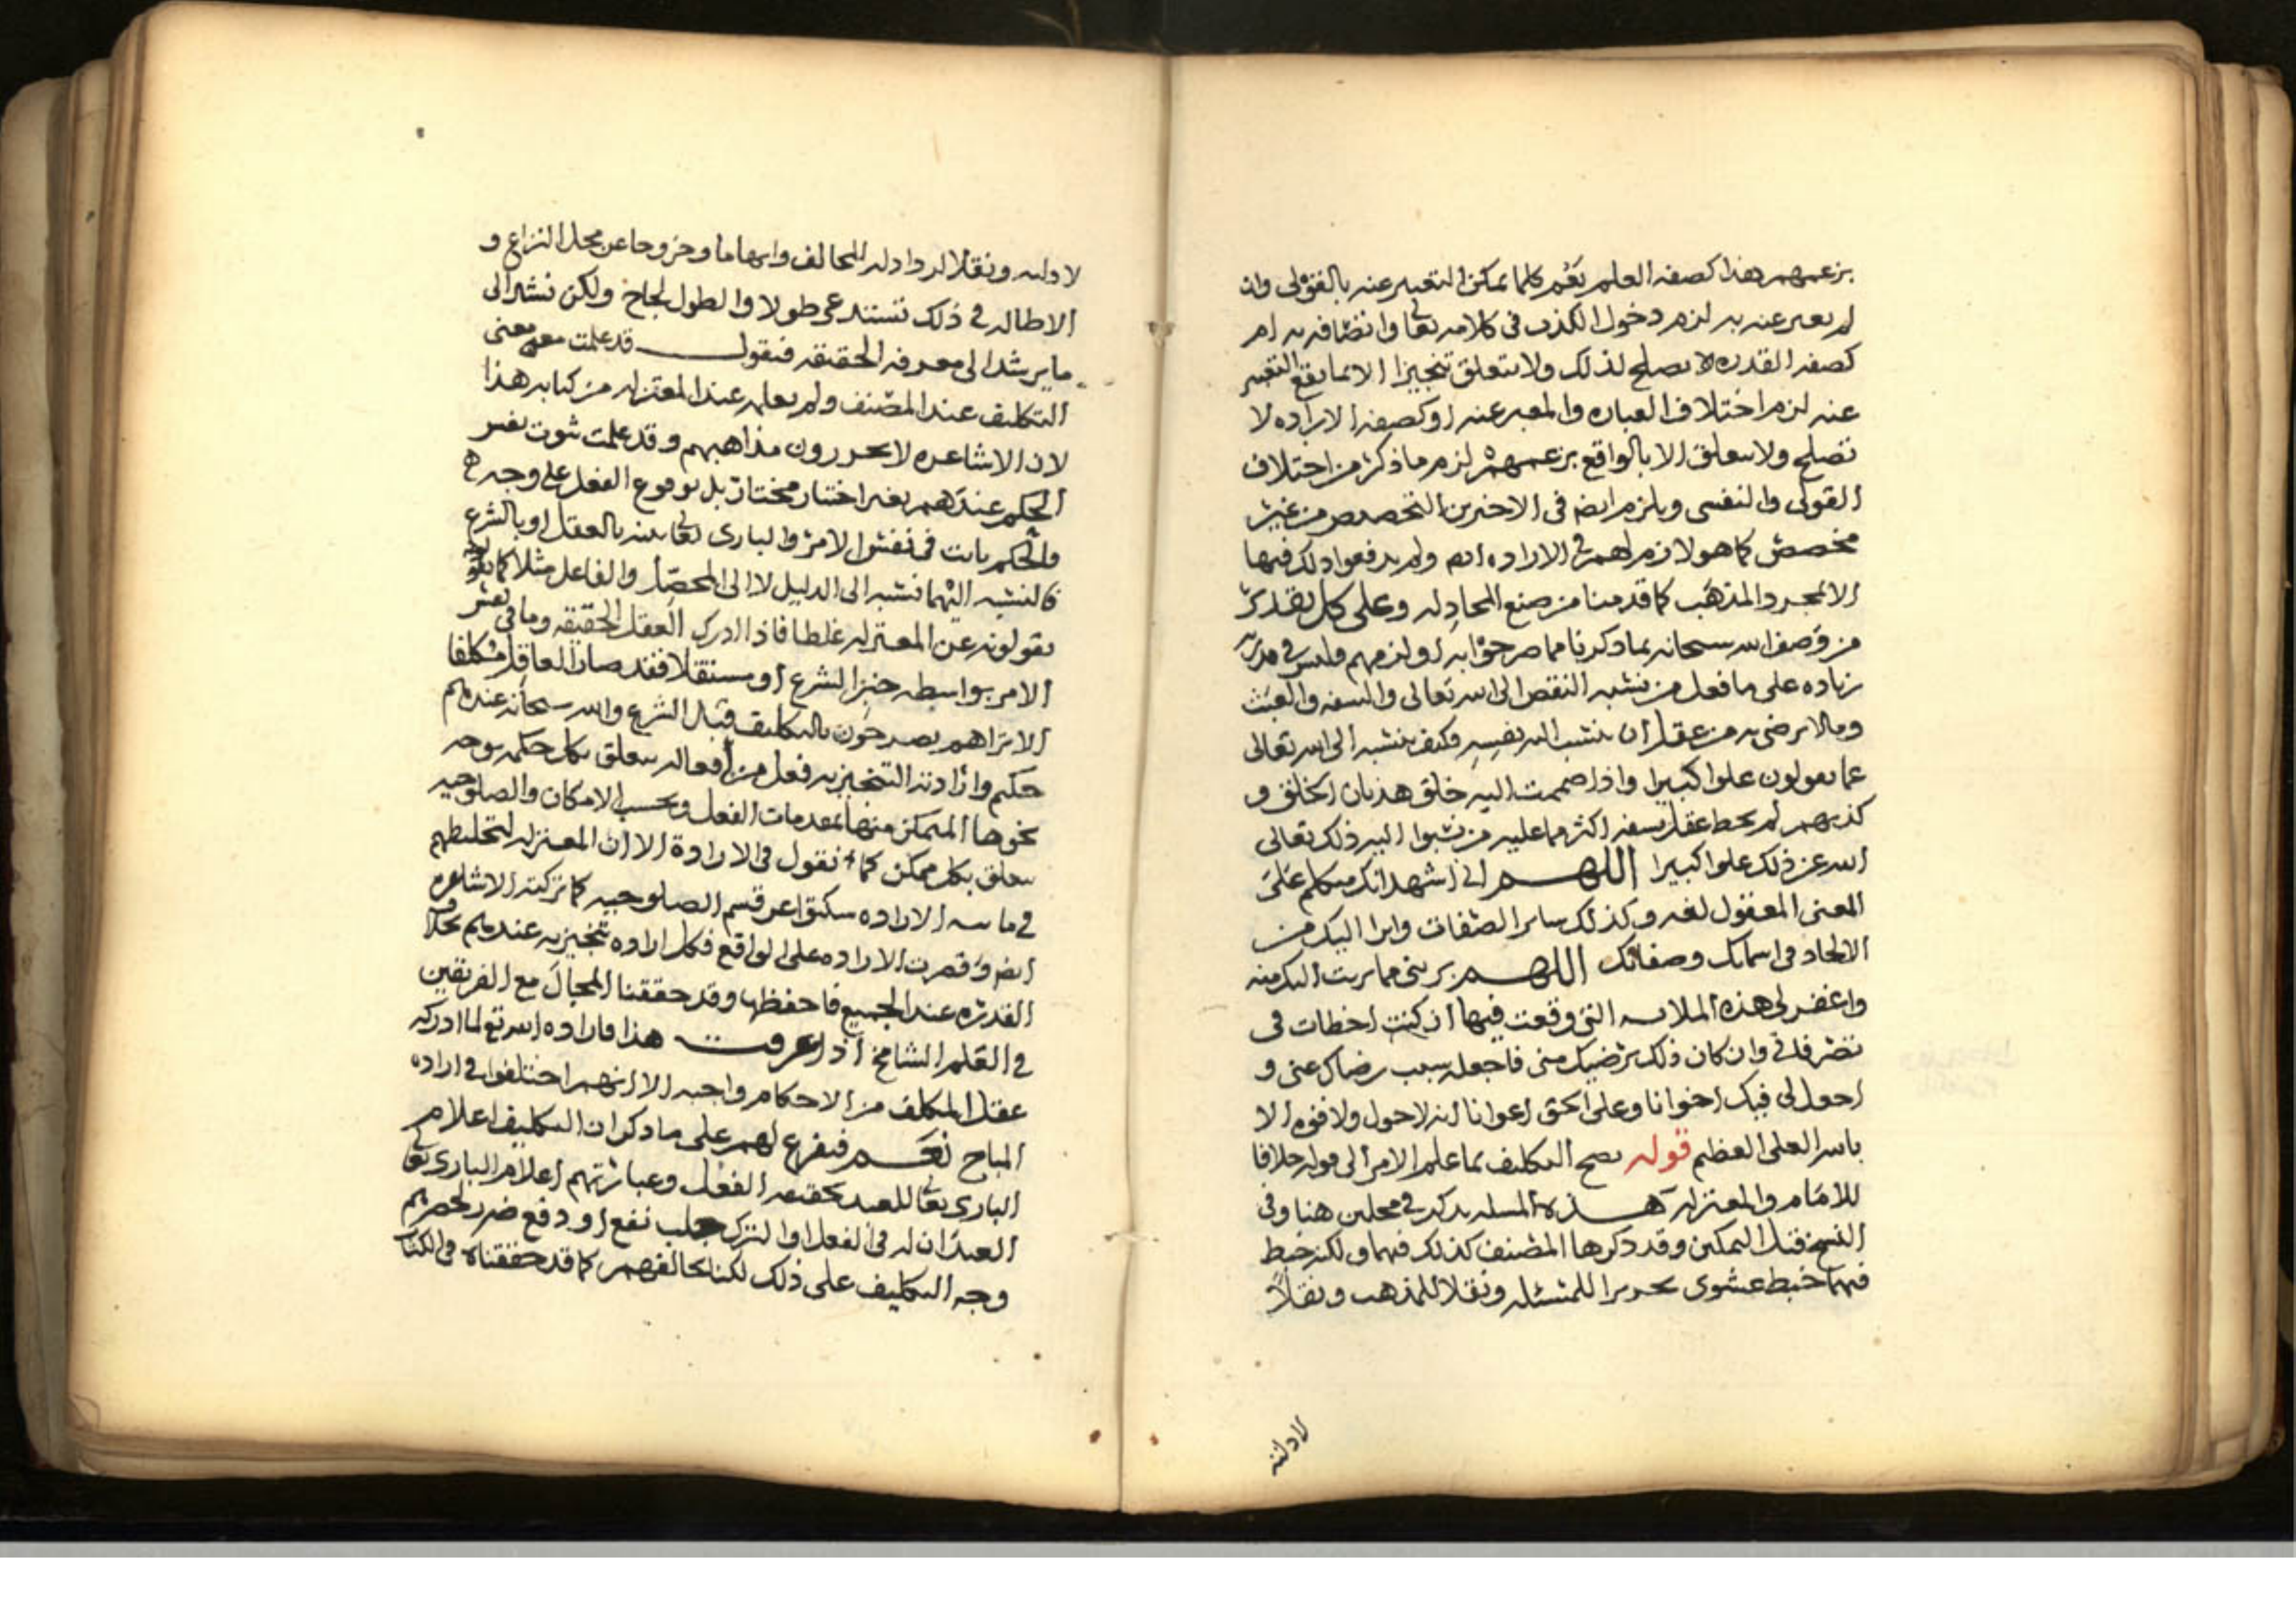 بزعمهم هذا كصفه العلم يعم كلما يمكن التعبير عنه بالقولى وان
لم يعبر عنه به لزم دخول الكذب فى كلامه تعالى واتصافه به ام
كصفه القدره لا يصلح لذلك ولا يتعلق تنجيزا الا بما يقع التعبير
عنه لزم اختلاف العباره والمعبر عنه او كصفه الاراده لا
تصلح ولا تتعلق الا بالواقع بزعمهم لزم ما ذكر من اختلاف
القولى والنفسى ويلزم ايضا فى الاخيرين التخصيص من غير
مخصص كما هو لازم لهم فى الاراده ولم يدفعوا ذلك فيها
الا بمجرد المذهب كما قدمنا من صنع المجادله وعلى كل تقدير
من وصف الله سبحانه بما ذكرنا مما صرحوا به او لزمهم فليس فى
زياده على ما فعل من نسبه النقص الى الله تعالى والسفه والعبث
وما لا يرضى به من عقل ان ينسب اليه نفسه وكيف ينسبه الى الله تعالى
عما يقولون علوا كبيرا واذا ضممت اليه خلق هذيان الخلق و
كذبهم لم يحط عقل بسفه اكثر مما عليه من نسبوا اليه ذلك تعالى
الله عن ذلك علوا كبيرا اللهم انى اشهد انك متكلم على
المعنى المعقول لغه وكذلك ساير الصفات وابرا اليك من
الالحاد فى اسمائك وصفاتك اللهم برئنى مما برئت اليك منه
واغفر لى هذه الملابسه التى وقعت فيها ان كنت اخطات فى
تصرفى وان كان ذلك يرضيك منى فاجعله سبب رضاك عنى و
اجعل لى فيك اخوانا وعلى الحق اعوانا انه لا حول ولا قوه الا
بالله العلى العظيم قوله يصح التكليف بما علم الامر الى قوله خلافا
للامام والمعتزله هذه المسله يذكر فى محلين هنا وفى
النسخ قبل التمكين وقد ذكرها المصنف كذلك فيهما ولكنه خبط
فيهما خبط عشوى تحريرا للمسئله ونقلا للمذهب ونقلا
لادلته
لادلته ونقلا لرد ادله المخالف وايهاما وخروجا عن محل النزاع و
الاطاله فى ذلك تستدعى طولا والطول لجاج ولكن نشير الى
ما يرشد الى معرفه الحقيقه فنقول قد علمت معنى
التكليف عند المصنف ولم يعلم عند المعتزله من كتابه هذا
لان الاشاعره لا يحررون مذاهبهم وقد علمت ثبوت نفس
الحكم عندهم بغير اختيار مختار بل بوقوع الفعل على وجه
والحكم ثابت فى نفس الامر والبارى تعالى يبينه بالعقل او بالشرع
فالنسبه اليهما نسبه الى الدليل لا الى المحصل والفاعل مثلا كما
يقولونه عن المعتزله غلطا فاذا ادرك العقل الحقيقه وما فى نفس
الامر بواسطه خبر الشرع او مستقلا فقد صار العاقل مكلفا
الا تراهم يصرحون بالتكليف قبل الشرع والله سبحانه عندهم
حكيم وارادته التنجيزيه فعل من افعاله يتعلق بكل حكمه بوجه
نحوها المتمكن منها بمقدمات الفعل وبحسب الامكان والصلوحيه
يتعلق بكل ممكن كما نقول فى الاراده الا ان المعتزله لتخليطهم
فى الاراده سكتوا عن قسم الصلوحيه كما تركته الاشاعره
ايضا وقصرت الاراده على الواقع فكل اراده تنجيزيه عندهم بخلاف
القدره عند الجميع فاحفظها وقد حققنا المجال مع الفريقين
فى العلم الشامخ اذا عرفت هذا فاراده الله تعالى لما ادركه
عقل المكلف من الاحكام واجبه الا انهم اختلفوا فى اراده
المباح نعم فيفرع لهم على ما ذكر ان التكليف اعلام
البارى تعالى للعبد بحقيقه الفعل وعبارتهم اعلام البارى تعالى
العبد ان له فى الفعل او الترك جلب نفع او دفع ضرر لحصرهم
وجه التكليف على ذلك لكنا نخالفهم كما قد حققناه فى الكتاب